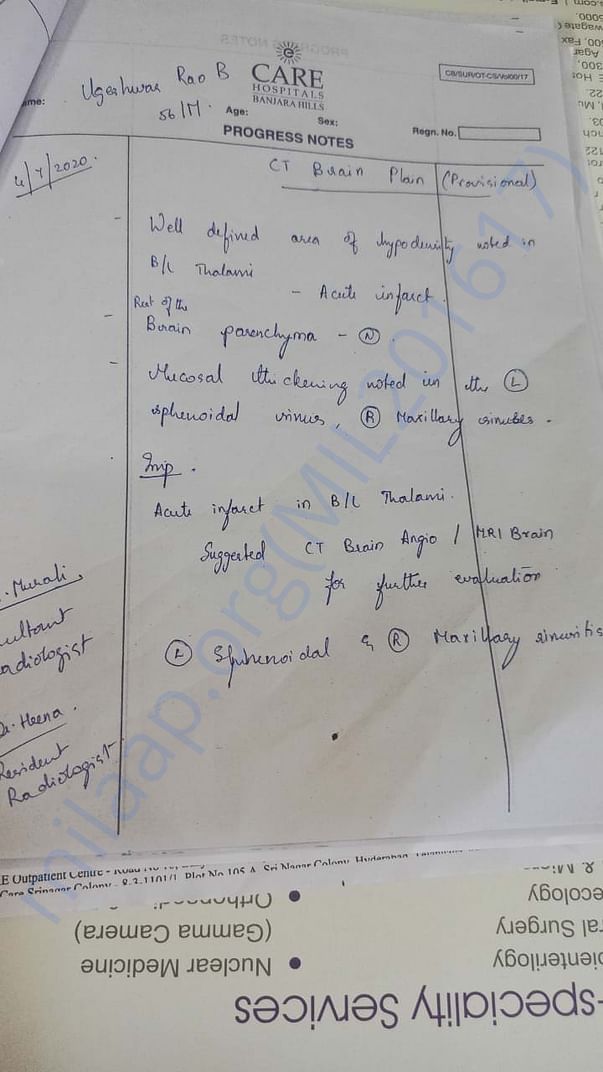 Ugeshwar Rao B
56/M.
CARE
HOSPITALS
BANJARA HILLS
CB/SUR/OT-CS/Vol00/17
ame:
Age:
Sex:
Regn. No.
PROGRESS NOTES
4/7/2020.
CT Brain Plain (Provisional)
- Well defined area of hypodensity noted in
B/L Thalami
- Acute infarct.
- Rest of the
Brain parenchyma - (N).
- Mucosal thickening noted in the (L)
sphenoidal sinus, (R) Maxillary sinuses.
Imp.
Acute infarct in B/L Thalami.
Suggested CT Brain Angio / MRI Brain
for further evaluation
(L) Sphenoidal & (R) Maxillary sinusitis
. Murali,
sultant
adiologist
Dr. Heena.
Resident
Radiologist
milaap.org(MIL201617)
E Outpatient Centre - Road No
Care Srinagar Colony - 8-3-1101/1, Plot No 105 A, Sri Nagar Colony, Hyderabad
-speciality Services
Nuclear Medicine
(Gamma Camera)
ral Surgery
ecology